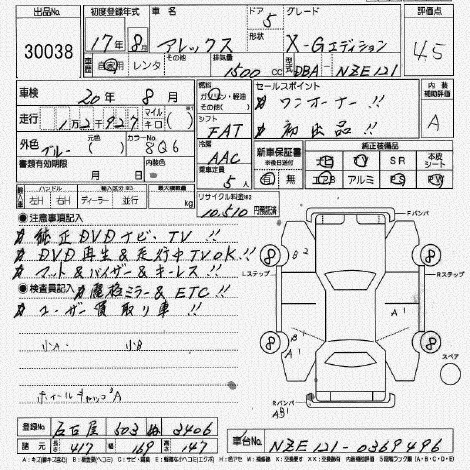 出品No. 初度登録年式 車名 ドア 5 グレード 評価点
30038 17年 8月 アレックス 形状 X-Gエディション 4.5
車歴 自家用 レンタ その他 排気量 1500 CC 型式 DBA NZE121
車検 20年 8月 燃料 ガソリン・軽油 その他( ) セールスポイント 内装補助評価
走行 1万2927 マイル キロ ( ) シフト FAT ワンオーナー!! A
外色 ブルー 元色( ) カラーNo. 8Q6 冷房 AAC 初出品!!
書類有効期限 月 日 内装色 乗車定員 5人 新車保証書 ※後日送付 有 無 純正装備品 SR 本皮シート
エアB アルミ PS PW
輸入車 ハンドル 左H 右H 輸入区分 ディーラー 並行 最大積載量 kg リサイクル料金 10,510 円預託済
●注意事項記入
純正DVDナビ、TV!!
DVD再生&走行中TVOK!!
マット&バイザー&キーレス!!
●検査員記入 ミラー&ETC!!
ユーザー買取り車!!
小A・ 小B
ホイールキャップA
Fバンパ
Lステップ Rステップ
8 8
8 8
B2
A1
B1
A1
スペア
Rバンパ
AB1
登録No. 名古屋 503 ぬ 3406
諸元 長さ 417 幅 169 高さ 147 車台No. NZE121-0369496